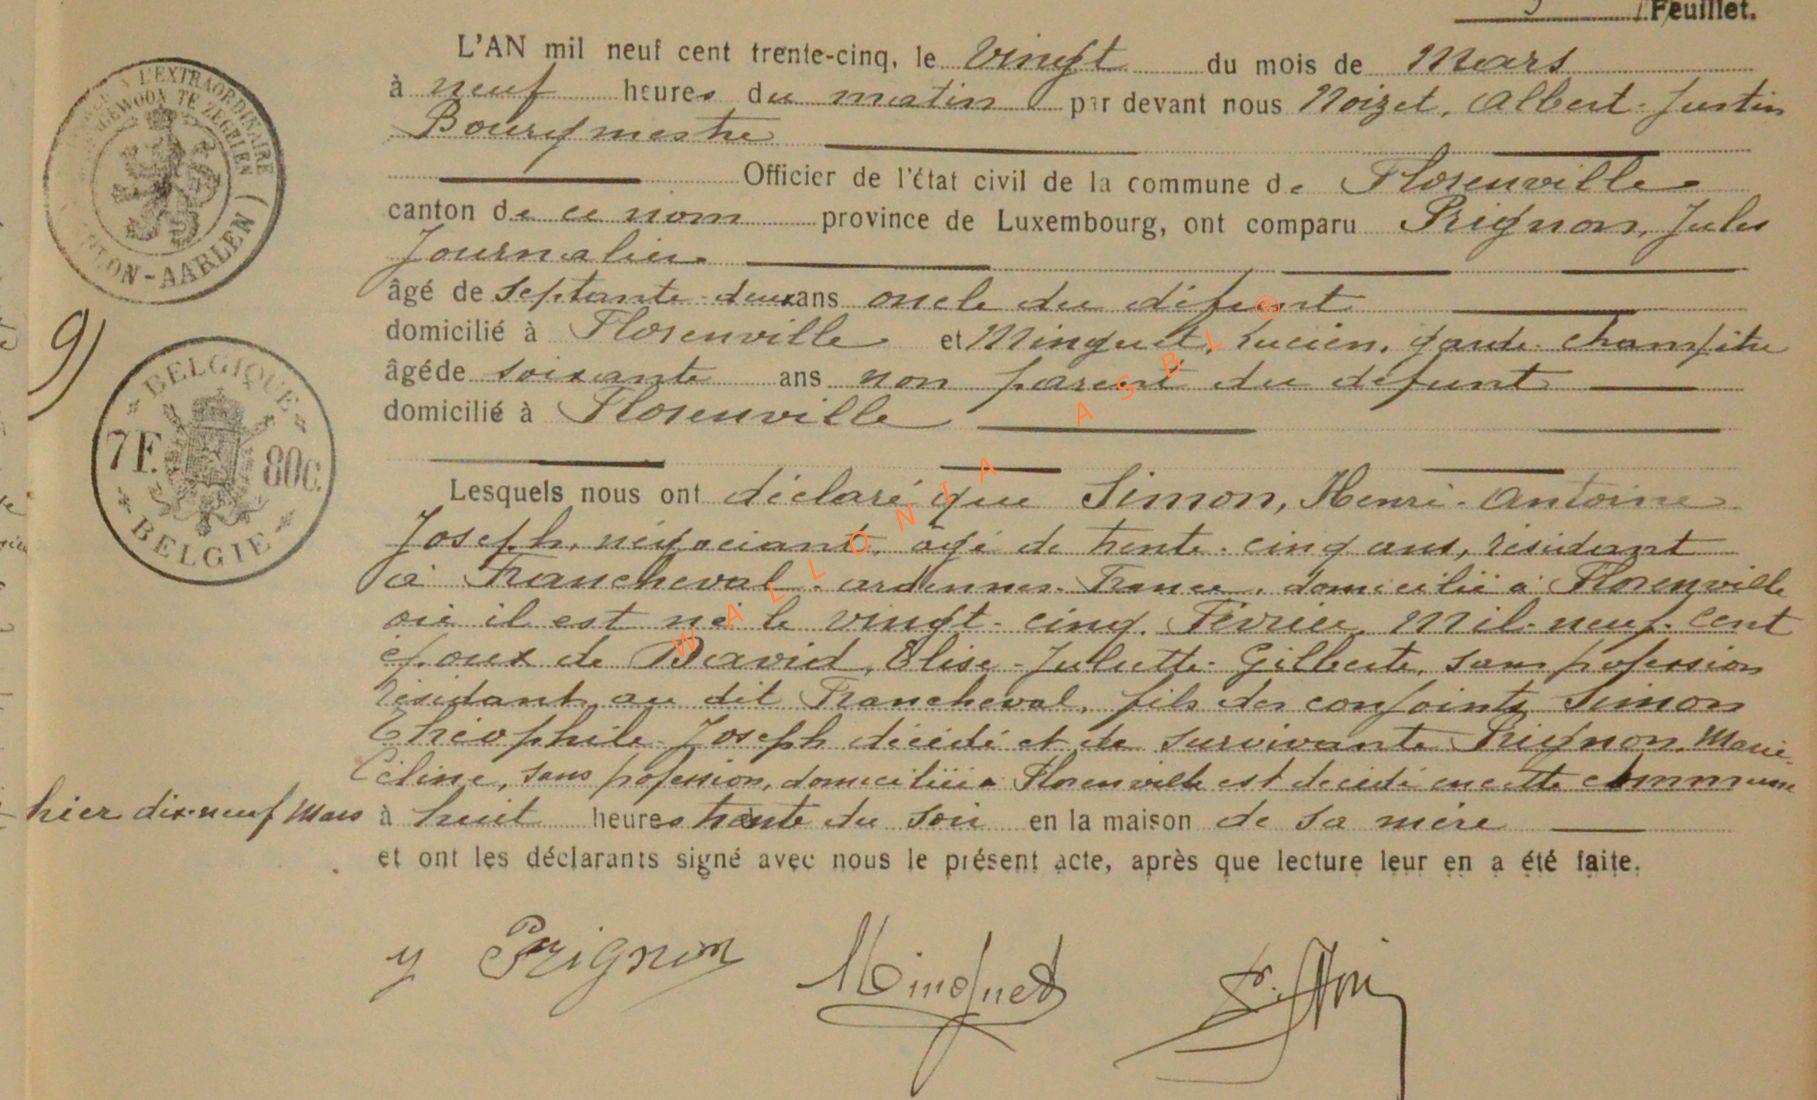 Feuillet.
L'AN mil neuf cent trente-cinq, le vingt du mois de Mars
à neuf heures du matin par devant nous Noizet, Albert-Justin
Bourgmestre
Officier de l'état civil de la commune de Florenville
canton de ce nom province de Luxembourg, ont comparu Prignon, Jules
Journalier
âgé de septante-deux ans oncle du défunt
domicilié à Florenville et Minguet, Lucien, garde-champêtre
âgé de soixante ans non parent du défunt
domicilié à Florenville
Lesquels nous ont déclaré que Simon, Henri-Antoine
Joseph, négociant, âgé de trente-cinq ans, résidant
à Francheval-ardennes-France, domicilié à Florenville
où il est né le vingt-cinq Février Mil-neuf-cent
époux de David, Elise-Juliette-Gilberte, sans profession
résidant au dit Francheval, fils des conjoints Simon
Théophile-Joseph décédé et de survivante Prignon, Marie-
Céline, sans profession, domiciliée à Florenville est décédé en cette commune
hier dix-neuf Mars à huit heures trente du soir en la maison de sa mère
et ont les déclarants signé avec nous le présent acte, après que lecture leur en a été faite.
y Prignon Minguet
L'EXTRAORDINAIRE
BUITENGEWOON TE ZEGELEN
ARLON-AARLEN
9)
BELGIQUE
7F. 80C.
BELGIE
WALLONIA ASBL ©